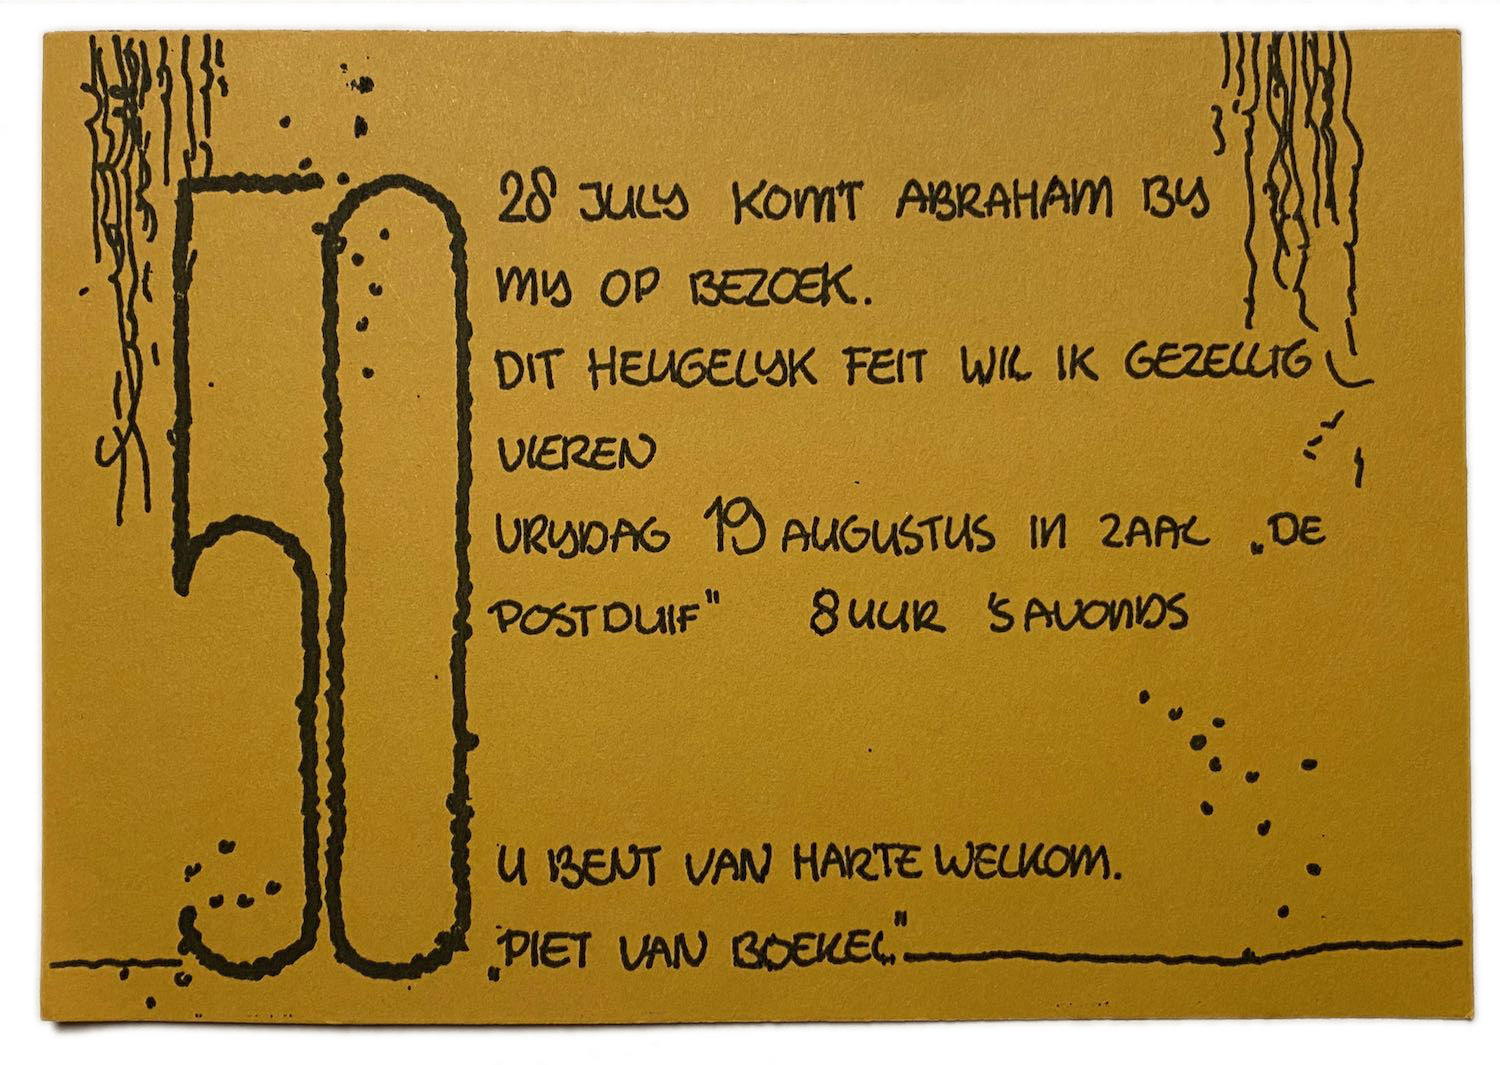 50
28 JULY KOMT ABRAHAM BY
MY OP BEZOEK.
DIT HEUGELYK FEIT WIL IK GEZELLIG
VIEREN
VRYDAG 19 AUGUSTUS IN ZAAL „DE
POSTDUIF" 8 UUR 'S AVONDS
U BENT VAN HARTE WELKOM.
„PIET VAN BOEKEL"